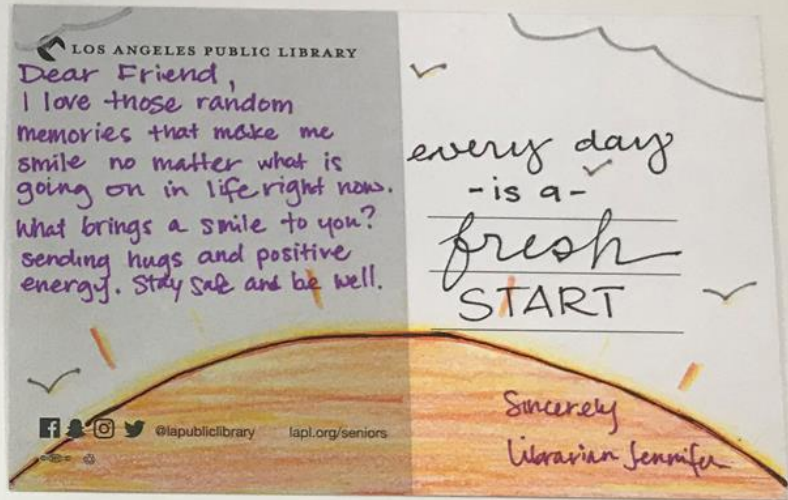 LOS ANGELES PUBLIC LIBRARY
Dear Friend,
I love those random
memories that make me
smile no matter what is
going on in life right now.
What brings a smile to you?
sending hugs and positive
energy. Stay safe and be well.
@lapubliclibrary lapl.org/seniors
every day
-is a-
fresh
START
Sincerely
Librarian Jennifer